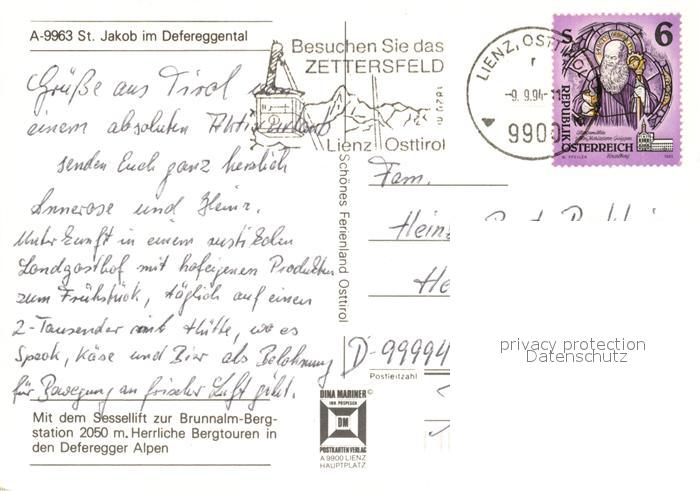 A-9963 St. Jakob im Defereggental
Grüße aus Tirol von
einem absoluten Aktivurlaub
senden Euch ganz herzlich
Annerose und Heinz.
Unterkunft in einem rustikalen
Landgasthof mit hofeigenen Produkten
zum Frühstück, täglich auf einen
2-Tausender mit Hütte, wo es
Speck, Käse und Bier als Belohnung
für Bewegung an frischer Luft gibt.
Mit dem Sessellift zur Brunnalm-Berg-
station 2050 m. Herrliche Bergtouren in
den Deferegger Alpen
Besuchen Sie das
ZETTERSFELD
1820 m
Lienz Osttirol
LIENZ, OSTTIROL
r
-9.9.94-11
9900
S 6
REPUBLIK
ÖSTERREICH
Schönes Ferienland Osttirol
Fam.
Heinz
He
D-99994
Postleitzahl
DINA MARINER©
INH. PROPESCH
DM
POSTKARTEN VERLAG
A 9900 LIENZ
HAUPTPLATZ
privacy protection
Datenschutz